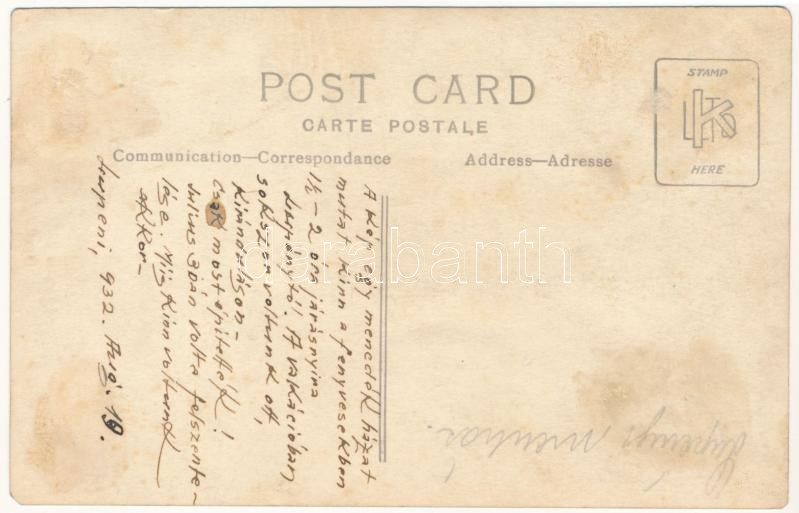 POST CARD
CARTE POSTALE
Communication—Correspondance
Address—Adresse
STAMP
HERE
A kép egy menedék házat
mutat kinn a fenyvesekben
1½ – 2 óra járásnyira
Lupénytől. A vakációban
sokszor voltunk ott,
Kiránduláson –
Csak most építették!
Julius 3 dikán volt a felszente-
lése. Mi is kinn voltunk
akkor –
Lupeni, 932. Aug. 19.
darabanth